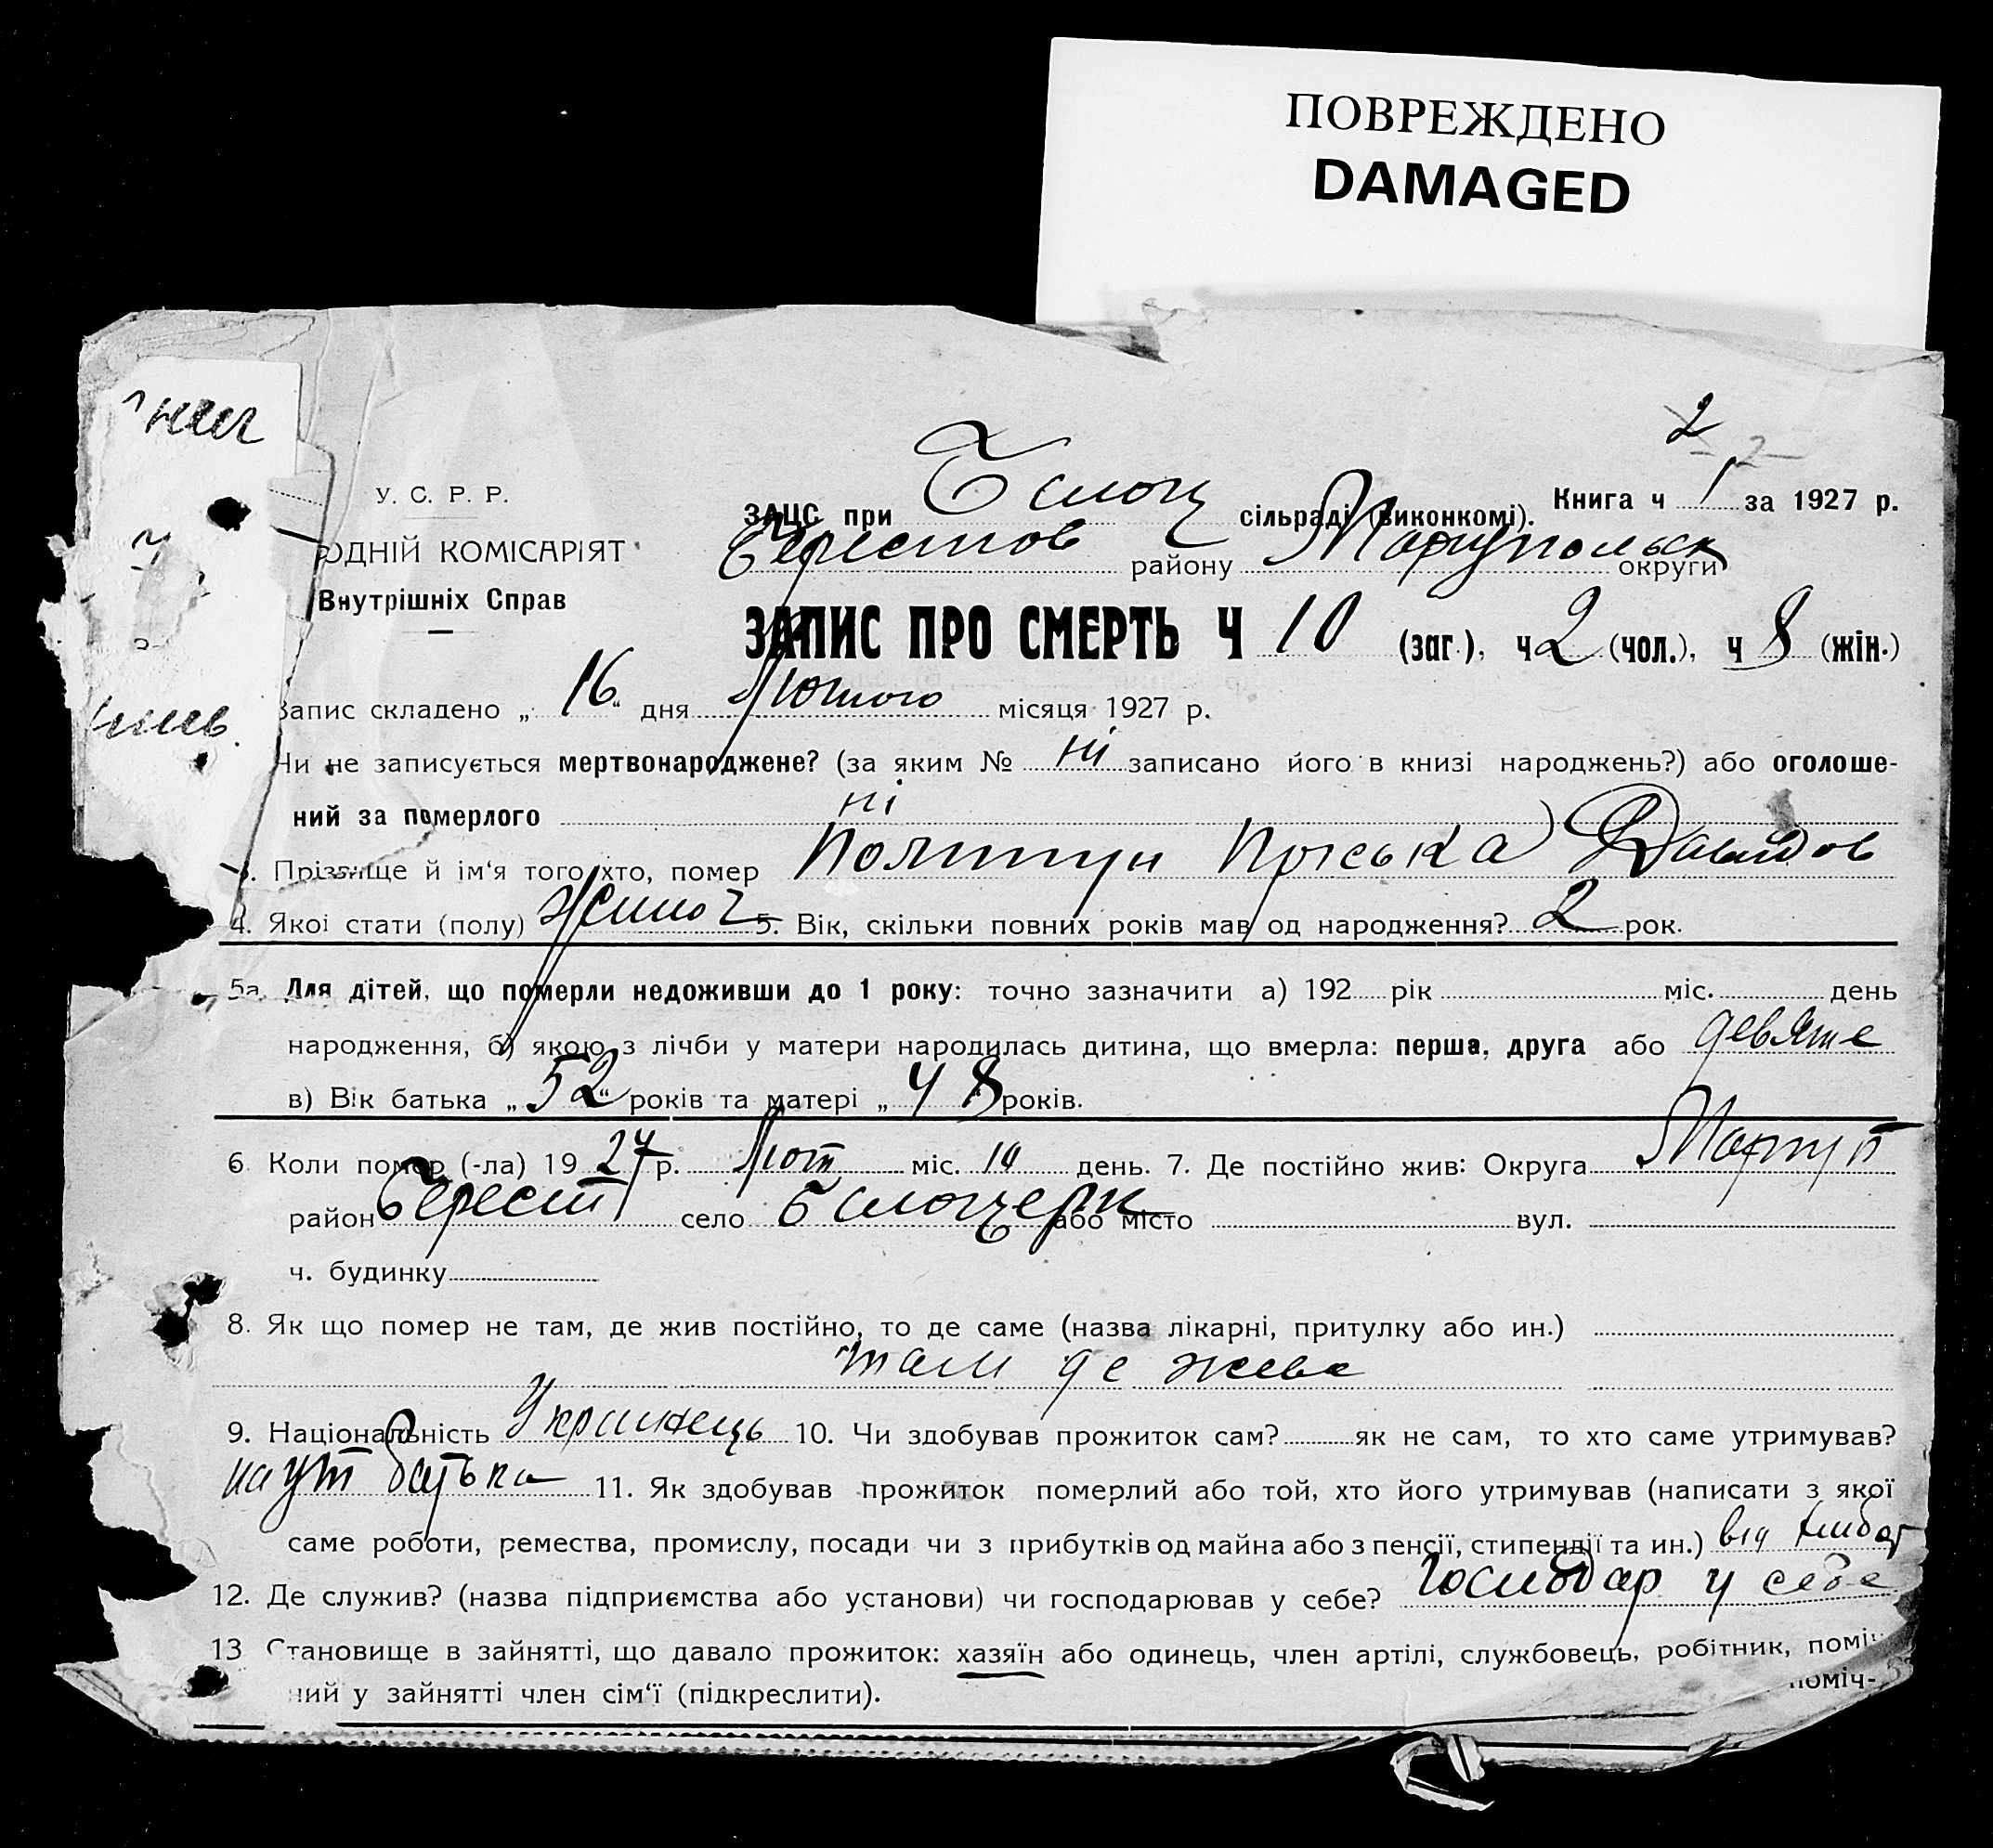 ПОВРЕЖДЕНО
DAMAGED
2
2
У. С. Р. Р.
ЗАЦС при Білоц сільраді (виконкомі). Книга ч 1 за 1927 р.
ОДНІЙ КОМІСАРІЯТ
Берестов району Маріупольськ округи
Внутрішніх Справ
ЗАПИС ПРО СМЕРТЬ Ч 10 (заг.), ч 2 (чол.), ч 8 (жін.)
Запис складено „ 16 “ дня Лютого місяця 1927 р.
Чи не записується мертвонароджене? (за яким № ні записано його в книзі народжень?) або оголоше-
ний за померлого ні
3. Прізвище й ім‘я того хто, помер Полтун Пріська Давидов
4. Якої стати (полу) Жіноч 5. Вік, скільки повних років мав од народження? 2 рок.
5а. Для дітей, що померли недоживши до 1 року: точно зазначити а) 192 рік міс. день
народження, б) якою з лічби у матери народилась дитина, що вмерла: перша, друга або девяте
в) Вік батька „ 52 “ років та матері „ 48 років.
6 Коли помер (-ла) 19 27 р. Лют міс. 14 день. 7. Де постійно жив: Округа Маріуп
район Берест село Білоцерк або місто вул.
ч. будинку
8. Як що помер не там, де жив постійно, то де саме (назва лікарні, притулку або ин.)
там де жева
9. Національність Українець 10. Чи здобував прожиток сам? як не сам, то хто саме утримував?
на ут батька 11. Як здобував прожиток померлий або той, хто його утримував (написати з якої
саме роботи, ремества, промислу, посади чи з прибутків од майна або з пенсії, стипендії та ин.) від хліба
12. Де служив? (назва підприємства або установи) чи господарював у себе? Господар у себе
13 Становище в зайнятті, що давало прожиток: хазяїн або одинець, член артілі, службовець, робітник, поміч-
ний у зайнятті член сім‘ї (підкреслити).
поміч-